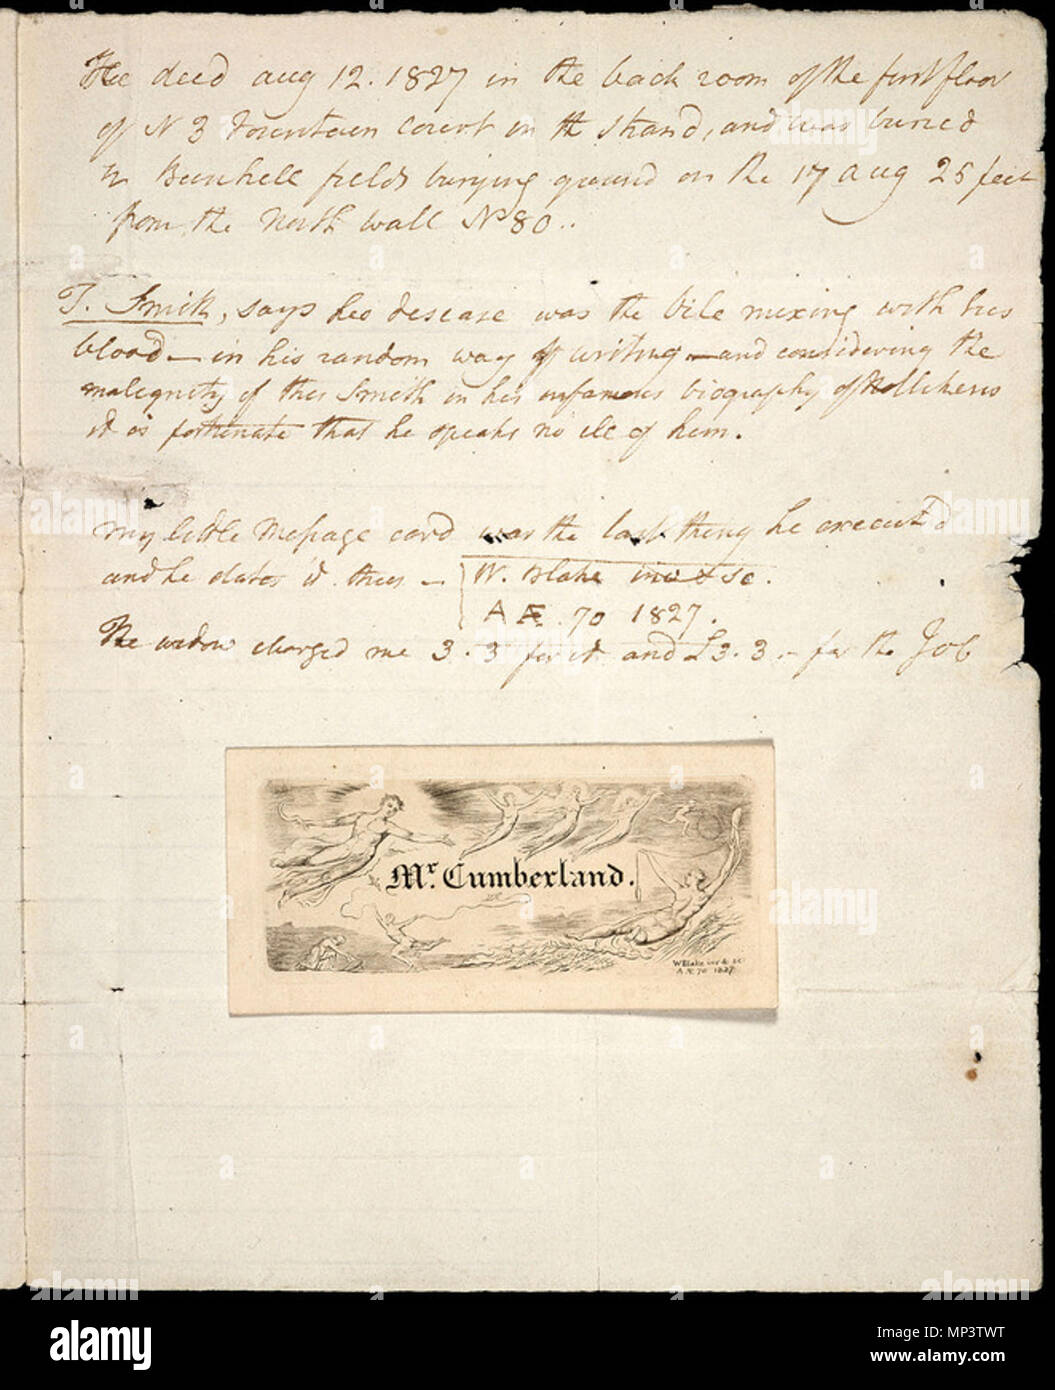 He died aug 12. 1827 in the back room of the first floor
of N 3 Fountain Court in the Strand, and was buried
in Bunhill fields burying ground on the 17 aug 25 feet
from the North wall No 80..
T. Smith, says his disease was the bile mixing with his
blood — in his random way of writing — and considering the
malignity of this Smith in his infamous biography of Nollikens
it is fortunate that he speaks no ill of him.
my little Message card was the last thing he executed
and he dates it thus — W. Blake inv & sc.
A Æ. 70 1827.
The widow charged me 3.3 for it and £3.3 - for the Job
Mr. Cumberland.
W Blake inv & sc
A Æ 70 1827
alamy
Image ID: MP3TWT
www.alamy.com